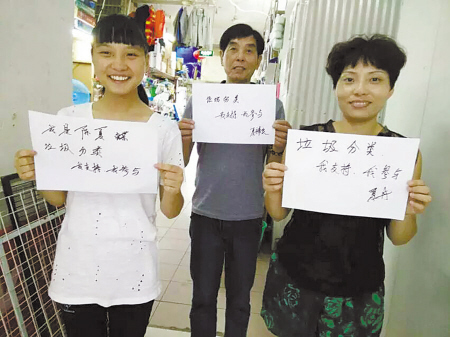 我是陈夏蝶
垃圾分类
我支持 我参与
垃圾分类
我支持 我参与
垃圾分类
我支持、我参与